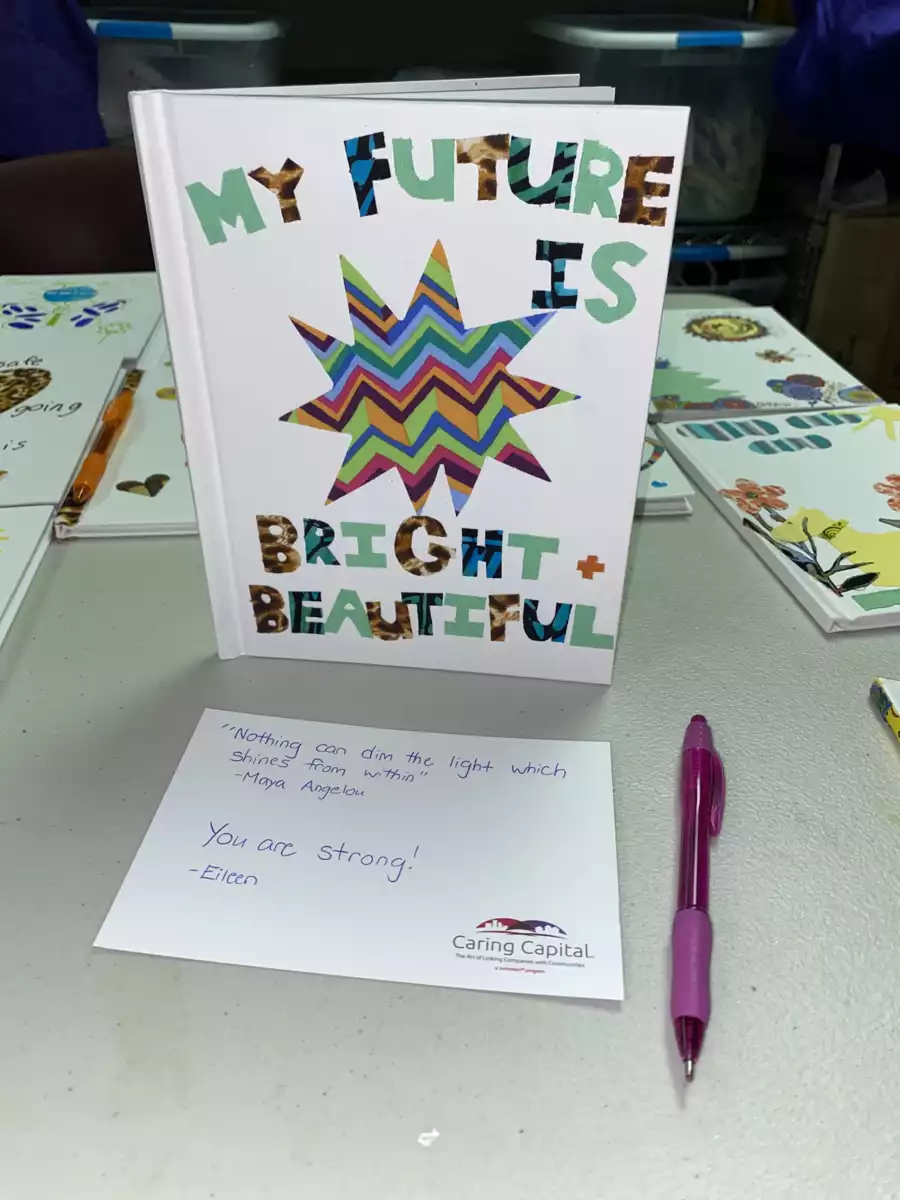 MY FUTURE
IS
BRIGHT +
BEAUTIFUL
"Nothing can dim the light which
shines from within"
-Maya Angelou
You are strong!
-Eileen
Caring Capital
The Art of Linking Companies with Communities
going
is